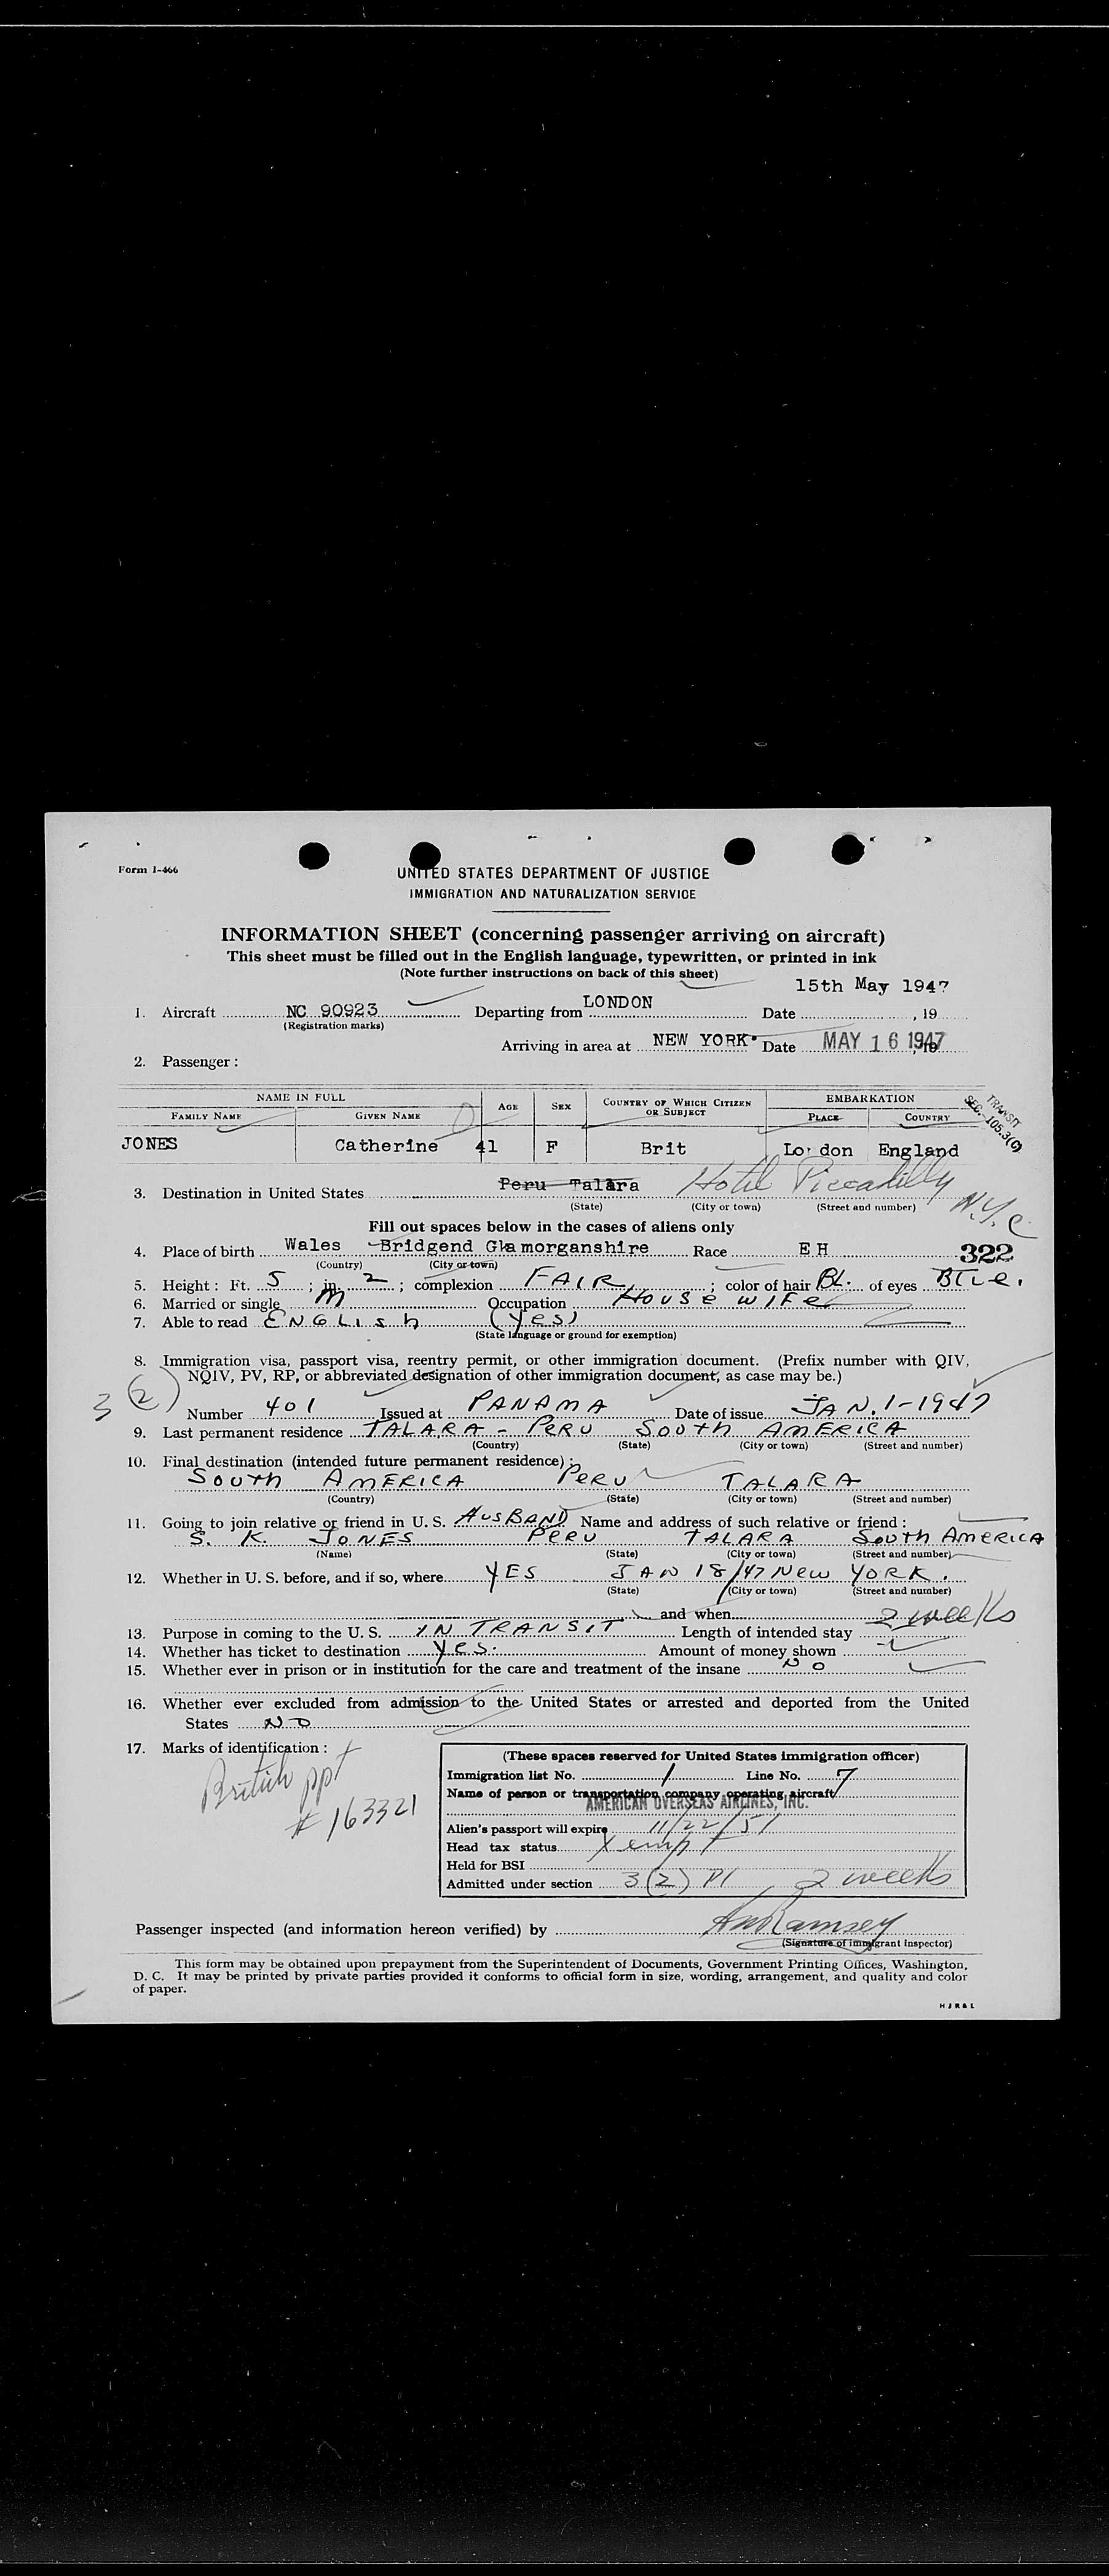 Form I-466
UNITED STATES DEPARTMENT OF JUSTICE
IMMIGRATION AND NATURALIZATION SERVICE
INFORMATION SHEET (concerning passenger arriving on aircraft)
This sheet must be filled out in the English language, typewritten, or printed in ink
(Note further instructions on back of this sheet)
15th May 1947
1. Aircraft NC 90923 Departing from LONDON Date , 19
(Registration marks)
Arriving in area at NEW YORK Date MAY 16 1947
2. Passenger :
NAME IN FULL AGE SEX COUNTRY OF WHICH CITIZEN OR SUBJECT EMBARKATION
FAMILY NAME GIVEN NAME PLACE COUNTRY
TRANSIT
SEC. 105.3(C)
JONES Catherine 41 F Brit Lo don England
3. Destination in United States Peru Talara Hotel Piccadilly N.Y.C
(State) (City or town) (Street and number)
Fill out spaces below in the cases of aliens only
4. Place of birth Wales Bridgend Glamorganshire Race E H 322
(Country) (City or town)
5. Height : Ft. 5 ; in. 2 ; complexion FAIR ; color of hair BL. of eyes BLUE.
6. Married or single M Occupation HOUSE WIFE
7. Able to read ENGLISH (YES)
(State language or ground for exemption)
8. Immigration visa, passport visa, reentry permit, or other immigration document. (Prefix number with QIV,
NQIV, PV, RP, or abbreviated designation of other immigration document, as case may be.)
3 (2)
Number 401 Issued at PANAMA Date of issue JAN. 1-1947
9. Last permanent residence TALARA - PERU SOUTH AMERICA
(Country) (State) (City or town) (Street and number)
10. Final destination (intended future permanent residence) :
SOUTH AMERICA PERU TALARA
(Country) (State) (City or town) (Street and number)
11. Going to join relative or friend in U. S. HUSBAND Name and address of such relative or friend :
S. K. JONES PERU TALARA SOUTH AMERICA
(Name) (State) (City or town) (Street and number)
12. Whether in U. S. before, and if so, where YES JAN 18/47 NEW YORK.
(State) (City or town) (Street and number)
and when
13. Purpose in coming to the U. S. IN TRANSIT Length of intended stay 2 weeks
14. Whether has ticket to destination YES. Amount of money shown
15. Whether ever in prison or in institution for the care and treatment of the insane NO
16. Whether ever excluded from admission to the United States or arrested and deported from the United
States NO
17. Marks of identification :
British ppt
# 163321
(These spaces reserved for United States immigration officer)
Immigration list No. 1 Line No. 7
Name of person or transportation company operating aircraft
AMERICAN OVERSEAS AIRLINES, INC.
Alien's passport will expire 11/22/51
Head tax status Xempt
Held for BSI
Admitted under section 3(2) P1 2 weeks
Passenger inspected (and information hereon verified) by Ramsey
(Signature of immigrant inspector)
This form may be obtained upon prepayment from the Superintendent of Documents, Government Printing Offices, Washington,
D. C. It may be printed by private parties provided it conforms to official form in size, wording, arrangement, and quality and color
of paper.
H J R & L